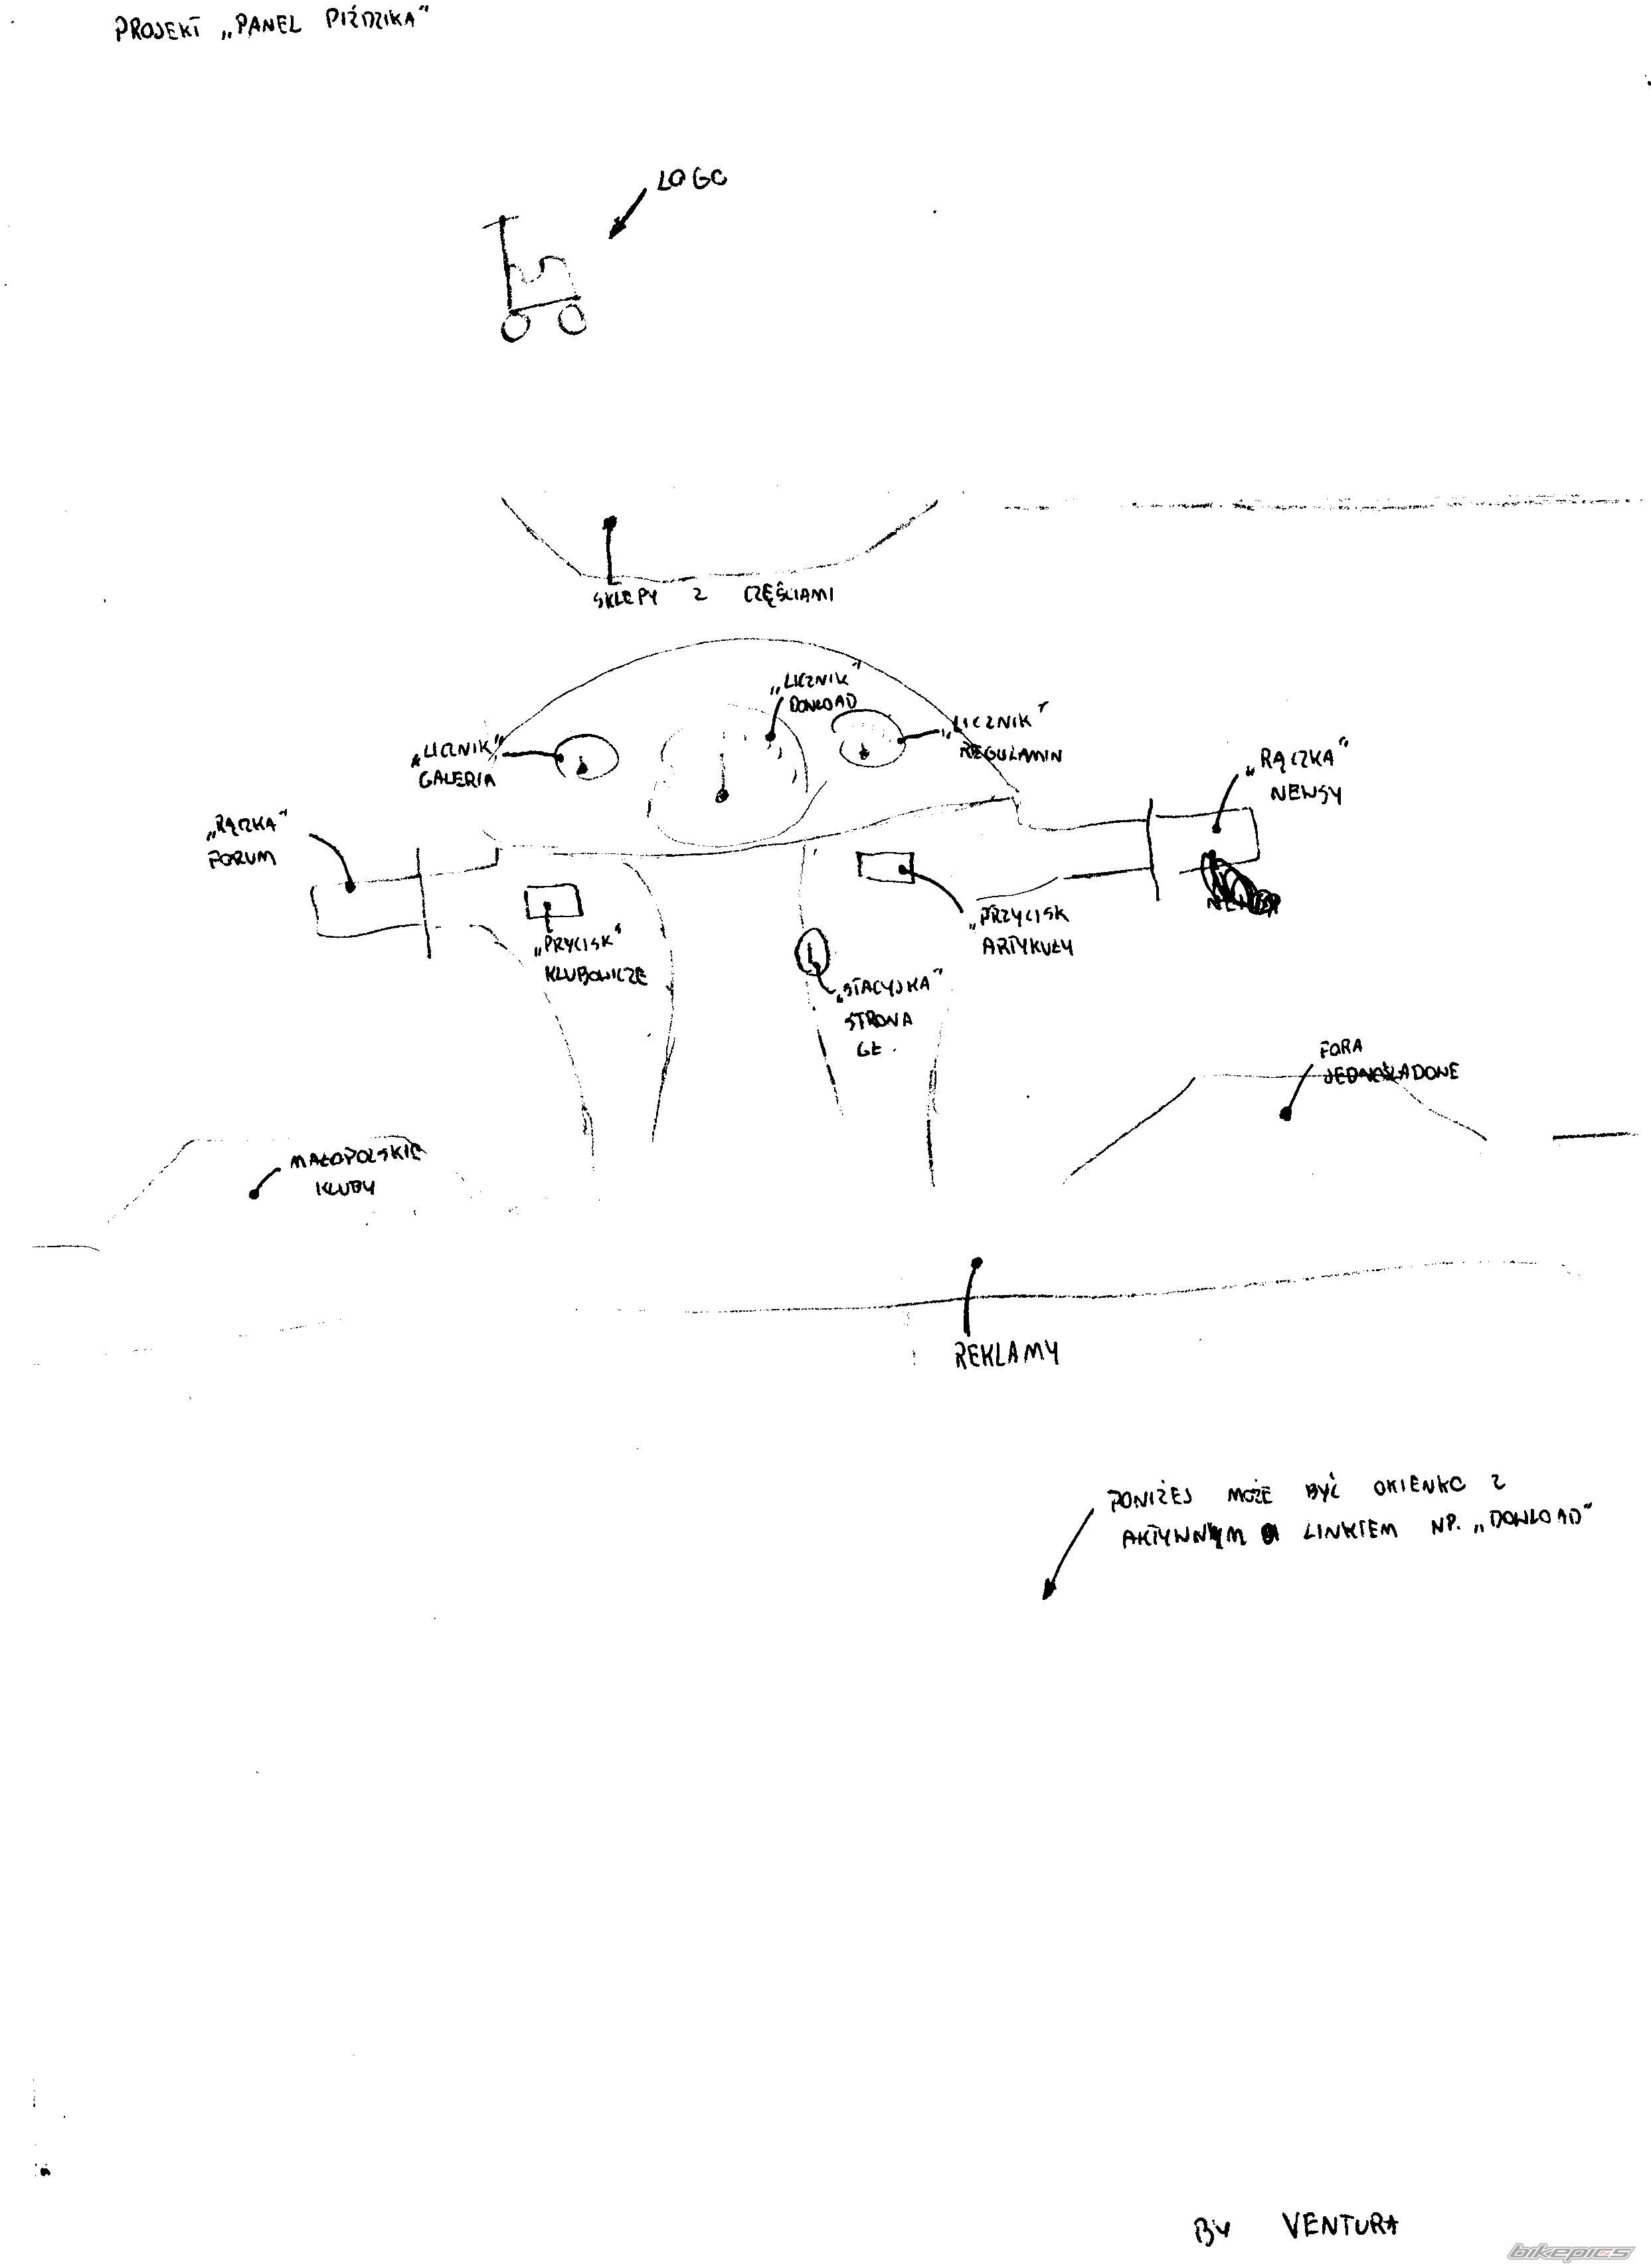 PROJEKT „PANEL PIŹDZIKA"
LOGO
SKLEPY Z CZĘŚCIAMI
„LICZNIK"
DOWLOAD
„LICZNIK"
REGULAMIN
„LICZNIK"
GALERIA
„RĄCZKA"
NEWSY
„RĄCZKA"
FORUM
„PRZYCISK
ARTYKUŁY
„PRYCISK"
KLUBOWICZE
„STACYJKA"
STRONA
GŁ.
FORA
JEDNOŚLADOWE
MAŁOPOLSKIE
KLUBY
REKLAMY
PONIŻEJ MOŻE BYĆ OKIENKO Z
AKTYWNYM LINKIEM NP. „DOWLOAD"
BY VENTURA
bikepics